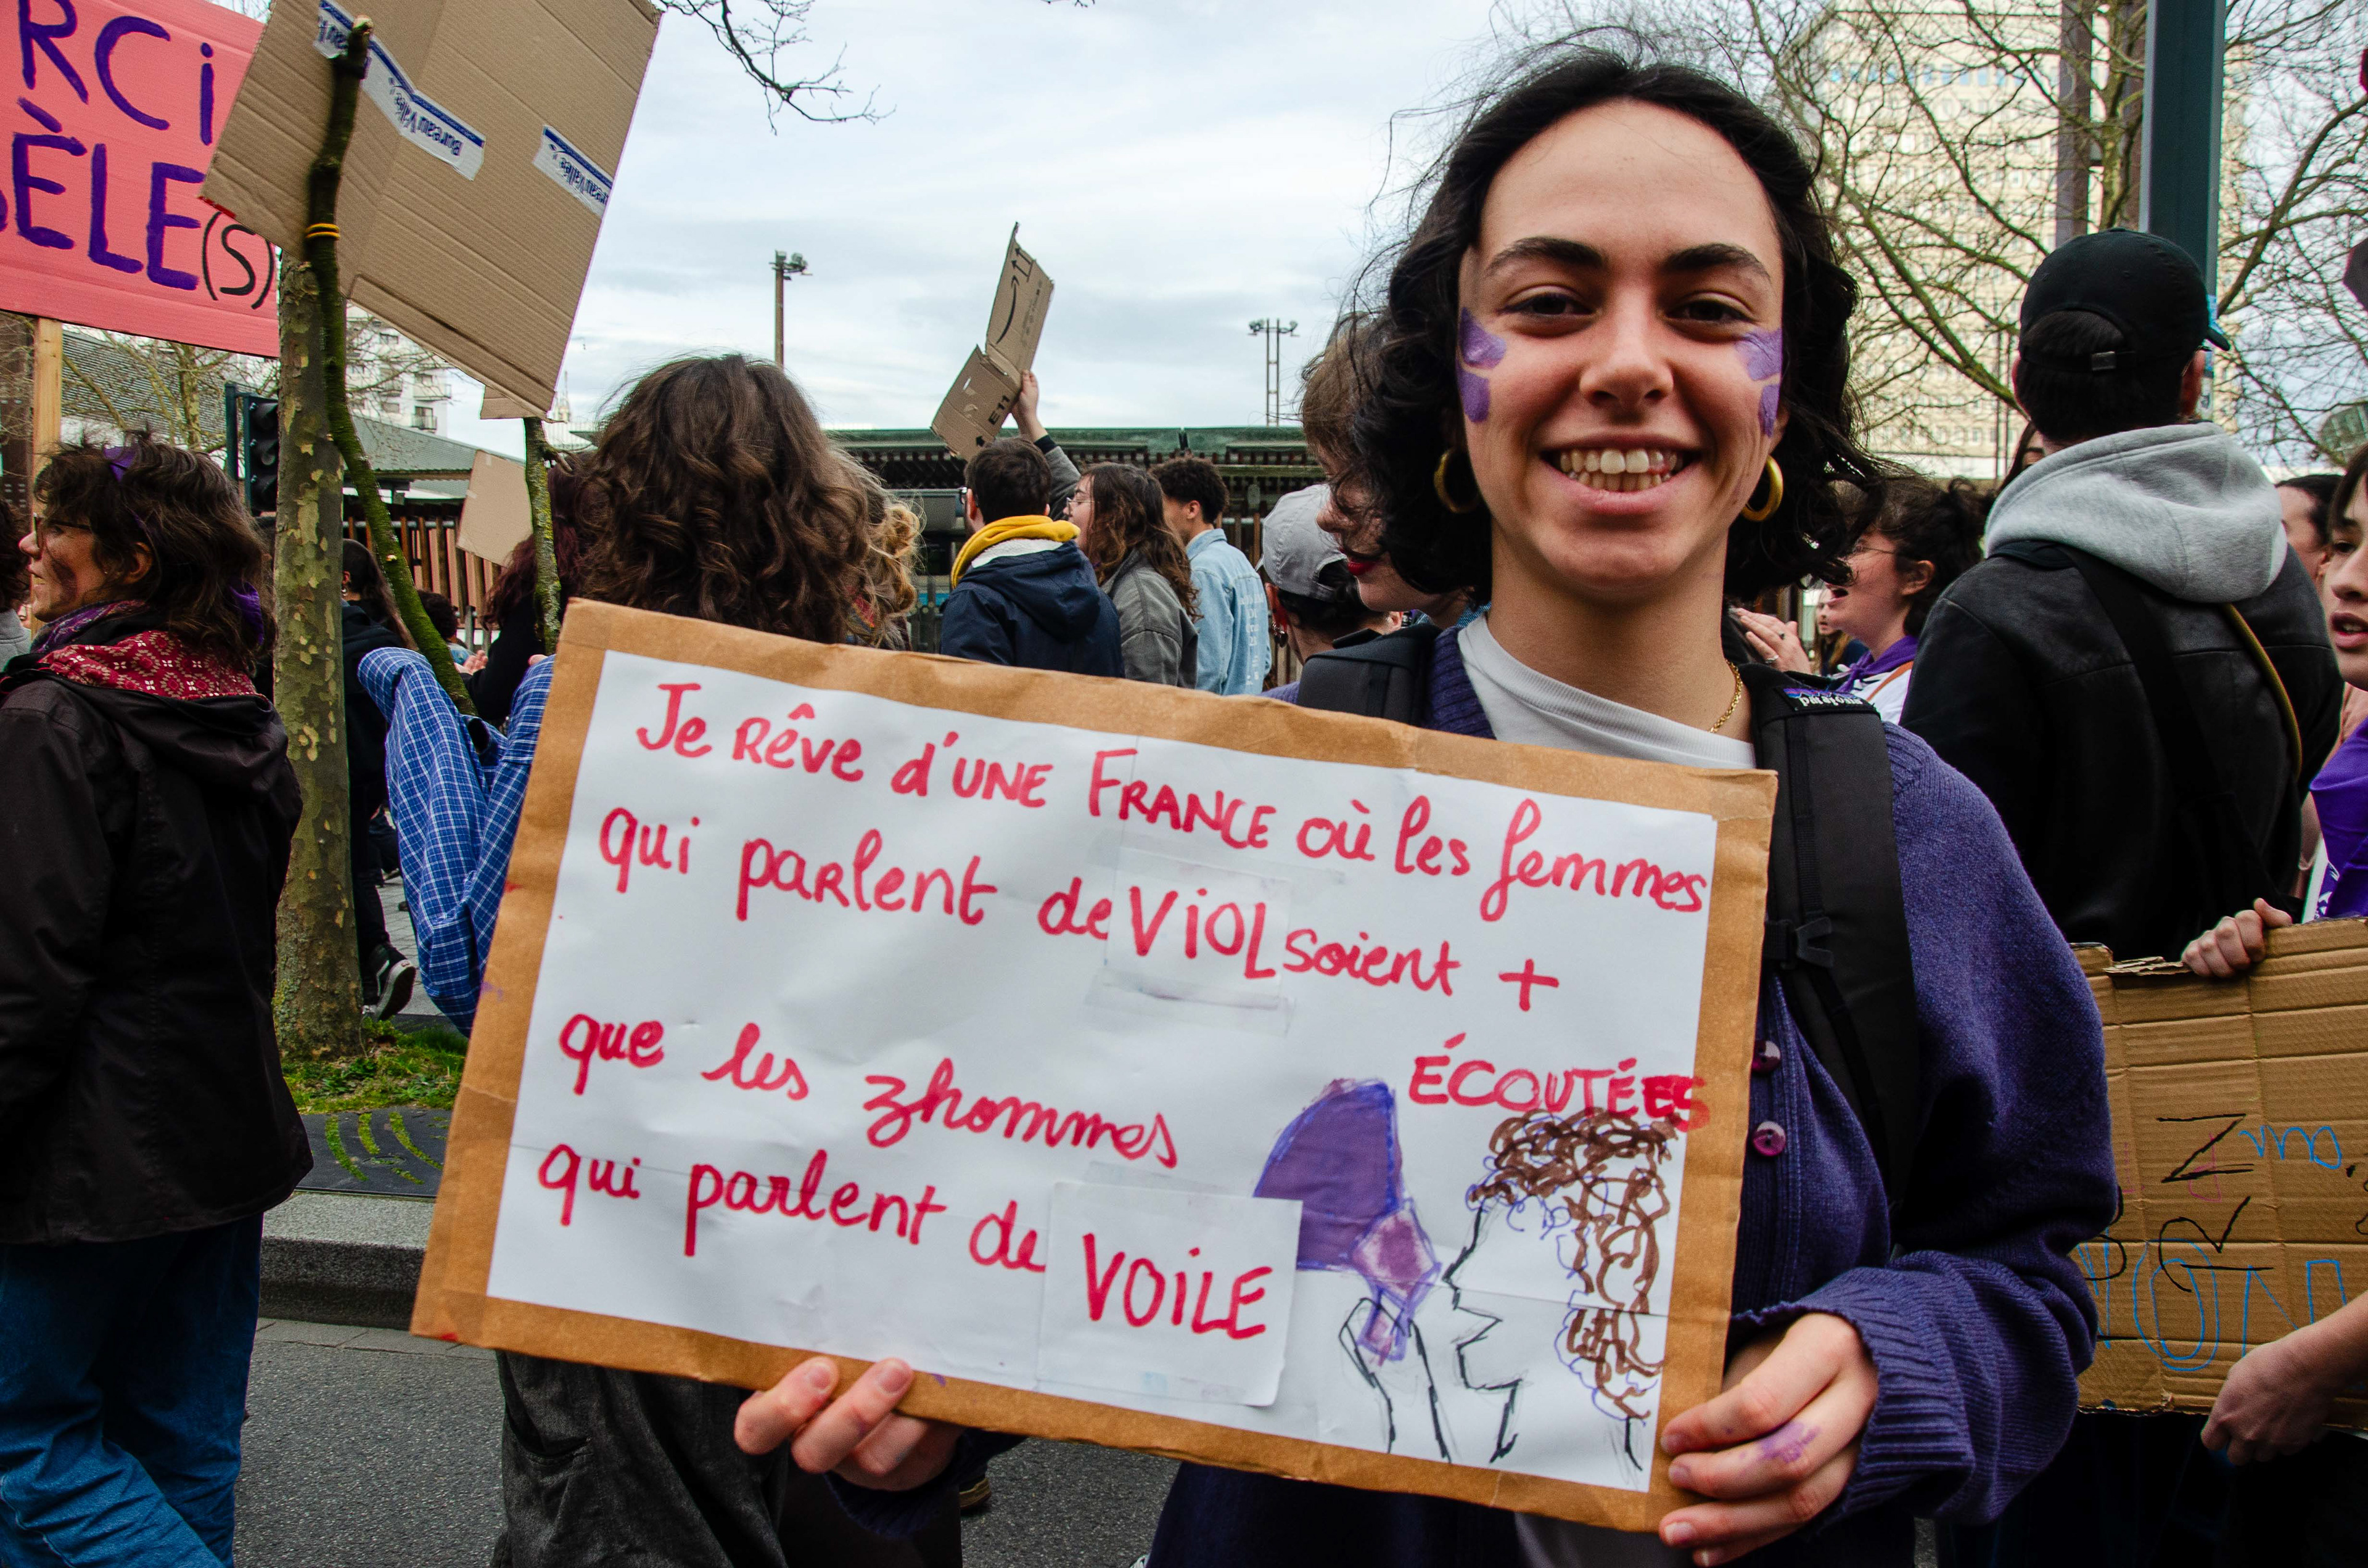 RCi
ÈLE(S)
Bureau Vallée
E11
patagonia
Je Rêve d'UNE FRANCE où les femmes
qui parlent de ViOL soient +
ÉCOUTÉES
que les zhommes
qui parlent de VOiLE